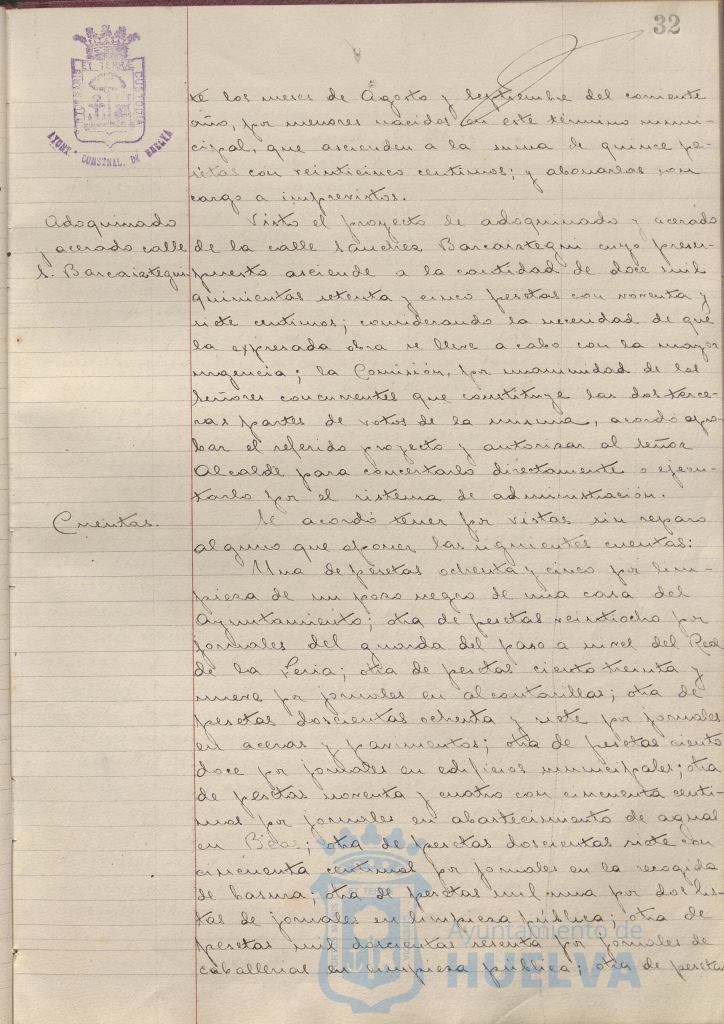 32
PORTUS MARIS ET TERRÆ CUSTODIA
AYUNT.º CONSTNAL. DE HUELVA
te los meses de Agosto y Septiembre del corriente
año, por menores nacidos en este término muni-
cipal, que ascienden a la suma de quince pe-
setas con veinticinco centimos; y abonarlas con
cargo a imprevistos.
Adoquinado
y acerado calle
S. Barcaiztegui
Visto el proyecto de adoquinado y acerado
de la calle Sanchez Barcaiztegui cuyo presu-
puesto asciende a la cantidad de doce mil
quinientas setenta y cinco pesetas con noventa y
siete centimos; considerando la necesidad de que
la expresada obra se lleve a cabo con la mayor
urgencia; la Comisión, por unanimidad de los
señores concurrentes que constituye las dos terce-
ras partes de votos de la misma, acordó apro-
bar el referido proyecto y autorizar al señor
Alcalde para concertarlo directamente o ejecu-
tarlo por el sistema de administración.
Cuentas.
Se acordó tener por vistas sin reparo
alguno que oponer las siguientes cuentas:
Una de pesetas ochenta y cinco por lim-
pieza de un pozo negro de una casa del
Ayuntamiento; otra de pesetas veintiocho por
jornales del guarda del paso a nivel del Real
de la Feria; otra de pesetas ciento treinta y
nueve por jornales en alcantarillas; otra de
pesetas doscientas ochenta y siete por jornales
en aceras y pavimentos; otra de pesetas ciento
doce por jornales en edificios municipales; otra
de pesetas noventa y cuatro con cincuenta centi-
mos por jornales en abastecimiento de aguas
en; otra de pesetas doscientas siete con
cincuenta centimos por jornales en la recogida
de basura; otra de pesetas mil una por dos lis-
tas de jornales en limpieza pública; otra de
pesetas mil doscientas sesenta por jornales de
caballerias en limpieza pública; otra de pesetas
Ayuntamiento de
HUELVA